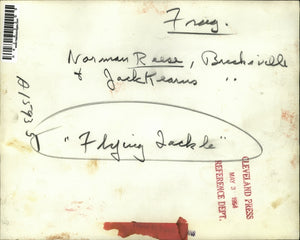 Frag.
Norman Reese, Brushville
& Jack Kearns "
A1593 5
"Flying Tackle"
CLEVELAND PRESS
MAY 3 1954
REFERENCE DEPT.